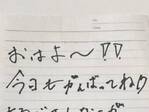 おはよ〜!!
今日もがんばってね!!